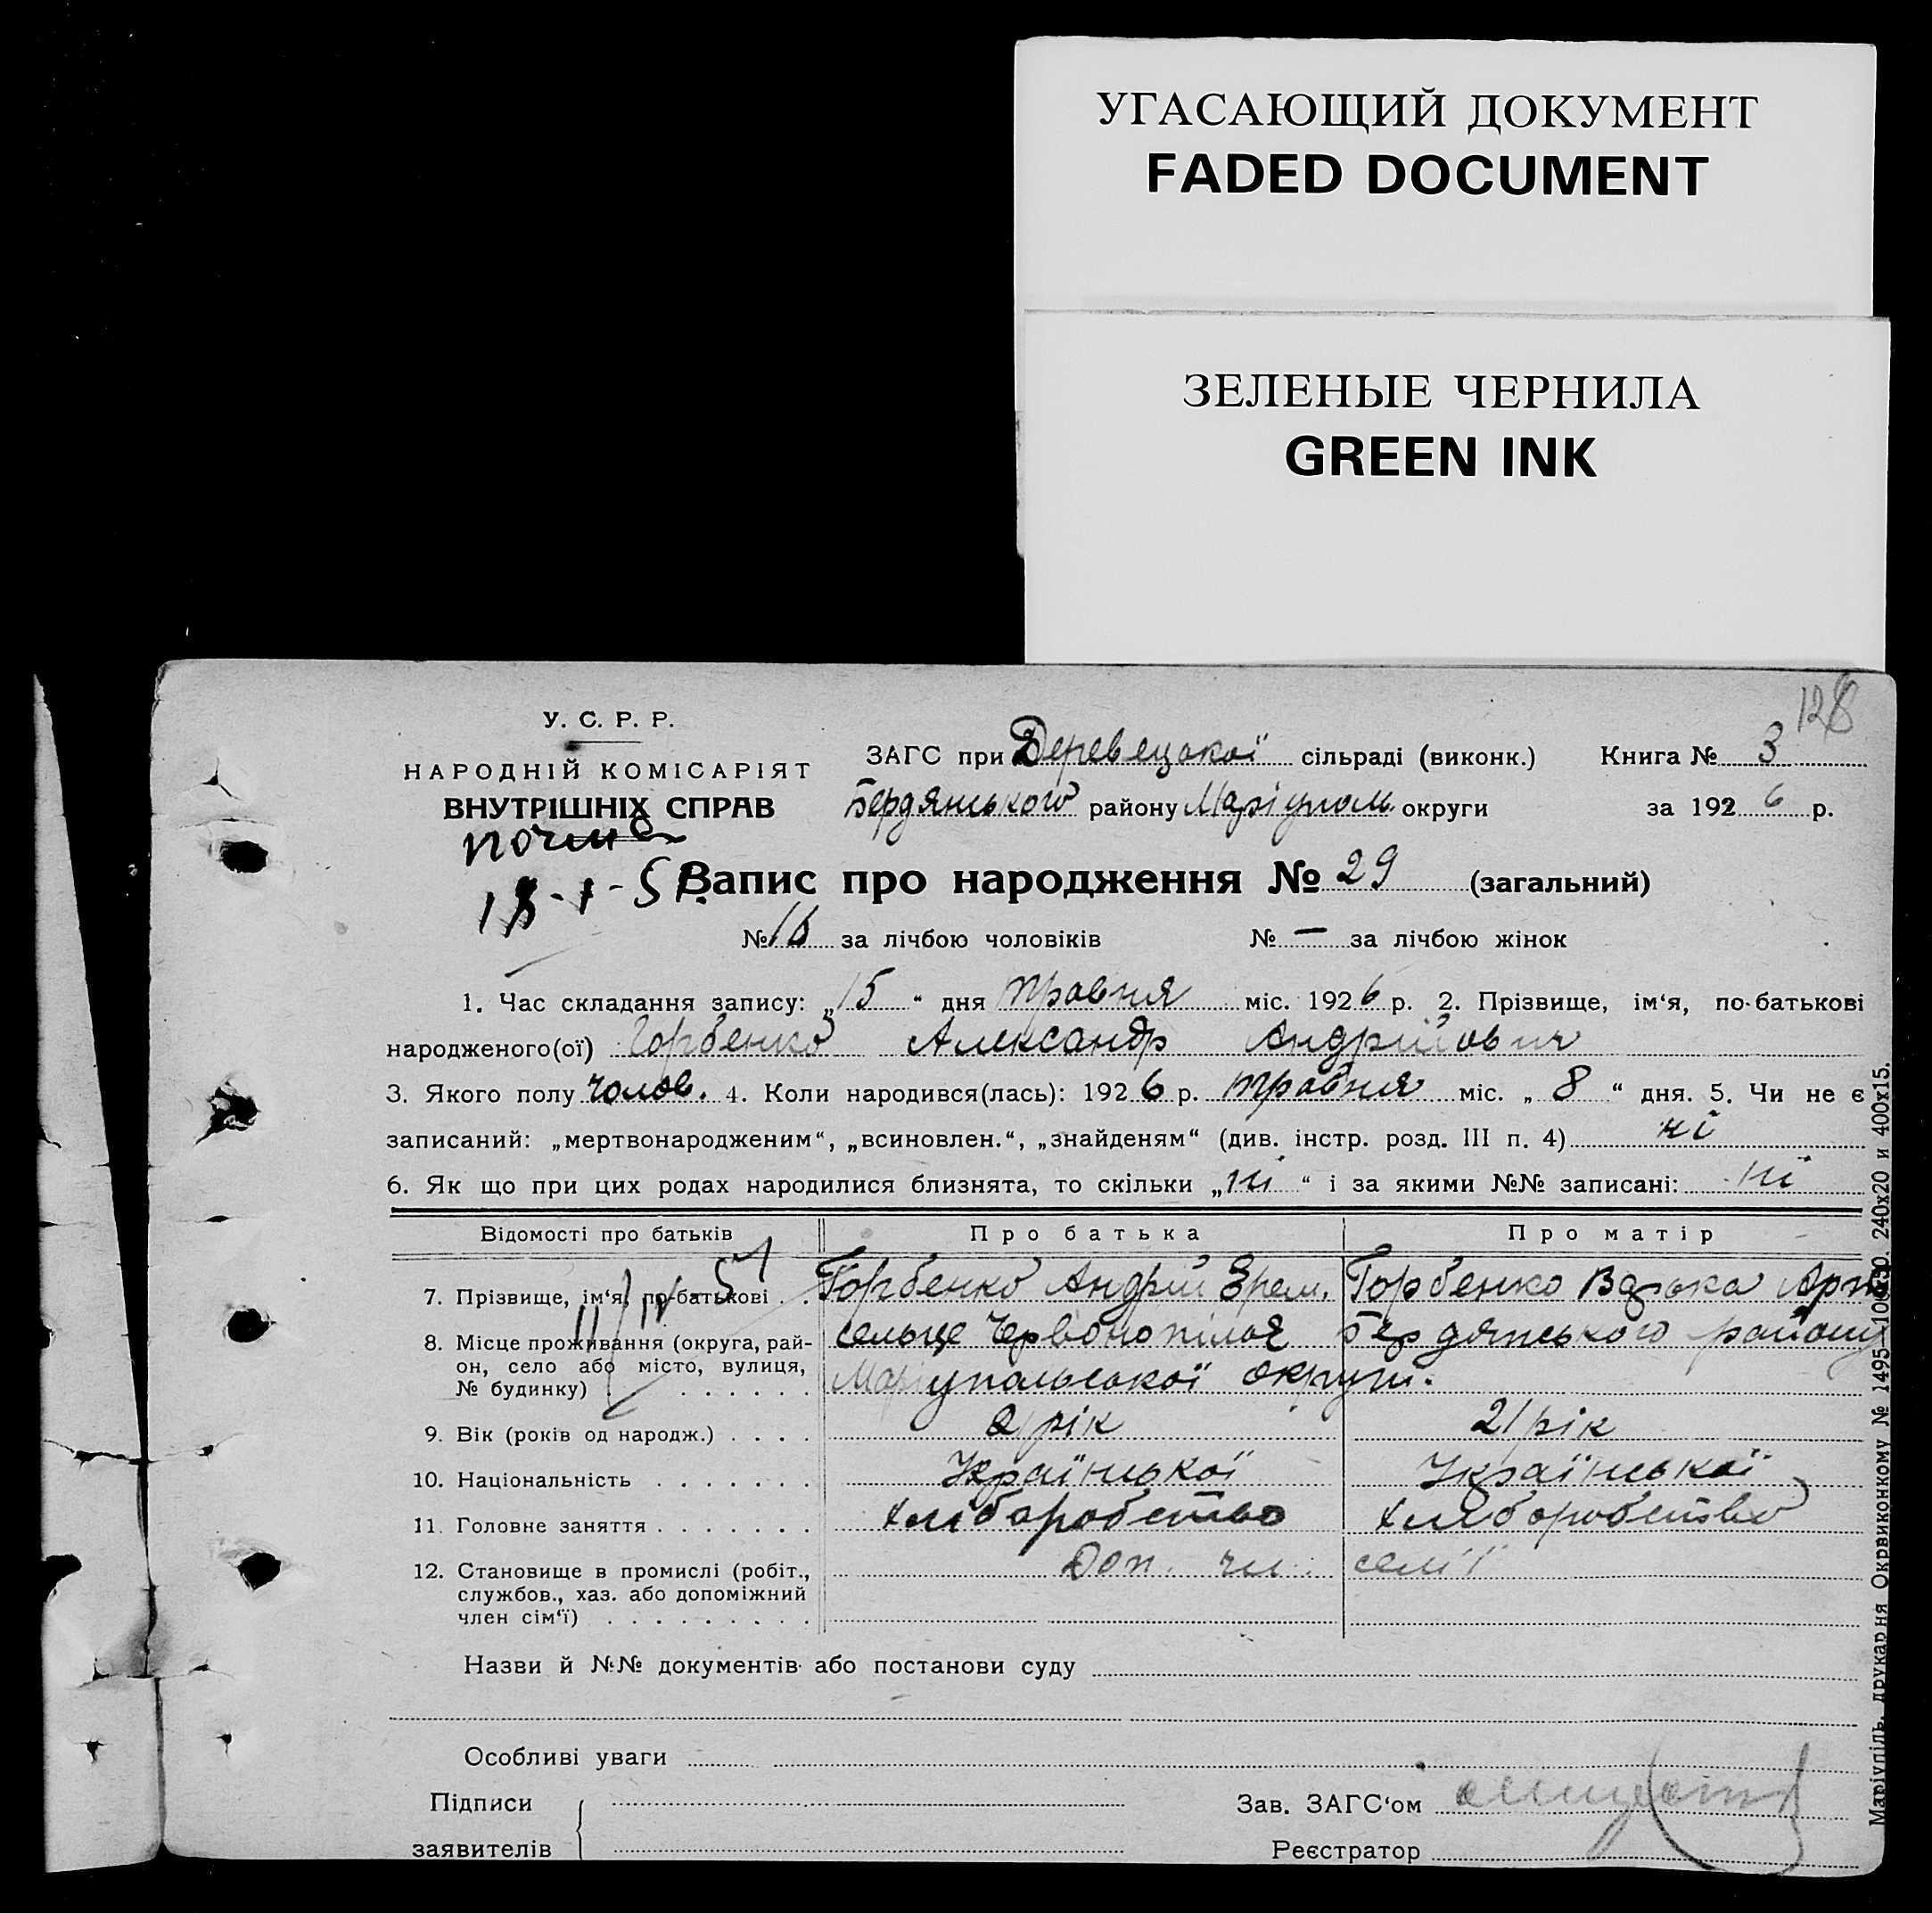 УГАСАЮЩИЙ ДОКУМЕНТ
FADED DOCUMENT
ЗЕЛЕНЫЕ ЧЕРНИЛА
GREEN INK
128
У. С. Р. Р.
НАРОДНІЙ КОМІСАРІЯТ
ВНУТРІШНІХ СПРАВ
ЗАГС при Деревецкої сільраді (виконк.) Книга № 3
Бердянського району Маріуполь. округи за 1926 р.
почта
Запис про народження № 29 (загальний)
№ 16 за лічбою чоловіків № — за лічбою жінок
1. Час складання запису: „15“ дня травня міс. 1926 р. 2. Прізвище, ім‘я, по-батькові
народженого(ої) Горбенко Александр Андрійович
3. Якого полу чолов. 4. Коли народився(лась): 1926 р. травня міс. „8“ дня. 5. Чи не є
записаний: „мертвонародженим“, „всиновлен.“, „знайденям“ (див. інстр. розд. III п. 4) ні
6. Як що при цих родах народилися близнята, то скільки „ні“ і за якими №№ записані: ні
Відомості про батьків Про батька Про матір
7. Прізвище, ім‘я, по-батькові . . Горбенко Андрій Ярем. Горбенко
8. Місце проживання (округа, рай-
он, село або місто, вулиця,
№ будинку) . . . . . . .
сельце Червонопілля Бердянського району
Маріупольської округи.
9. Вік (років од народж.) . . . . рік 21 рік
10. Національність . . . . . . . Української Української
11. Головне заняття . . . . . . . хліборобство хліборобство
12. Становище в промислі (робіт.,
службов., хаз. або допоміжний
член сім‘ї) . . . . . . . . .
Доп. чл. семʼї
Назви й №№ документів або постанови суду
Особливі уваги
Підписи
заявителів
Зав. ЗАГС‘ом
Реєстратор
Маріупіль, друкарня Окрвиконкому № 1495-100.000. 240x20 и 400x15.